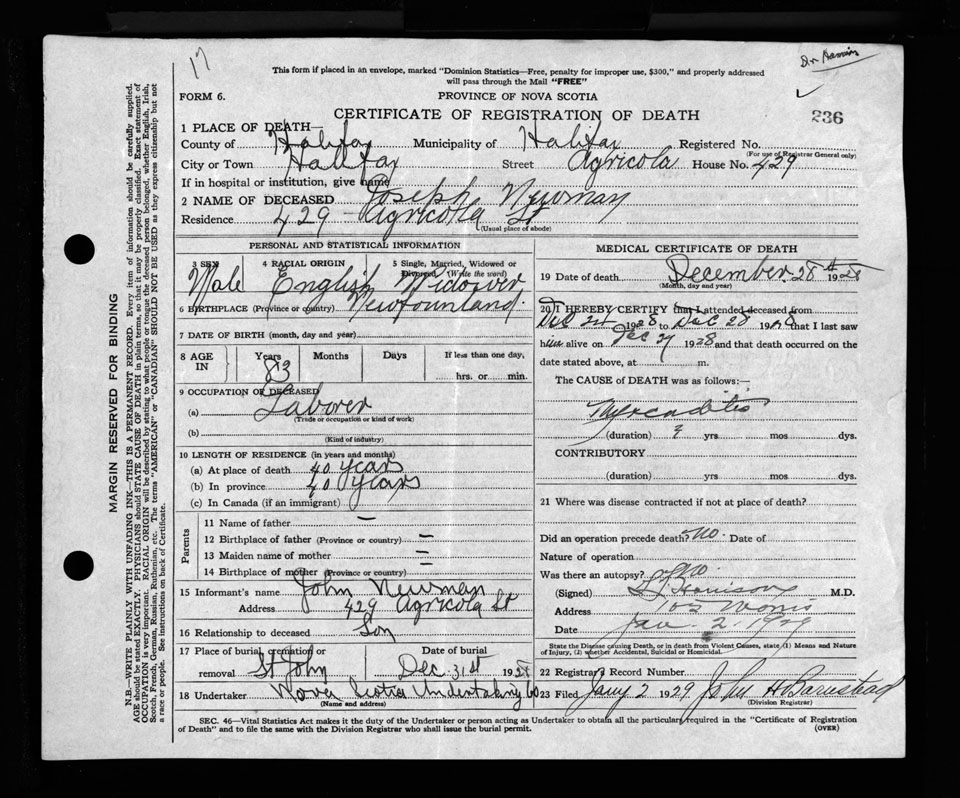 17
Dr Harrison
This form if placed in an envelope, marked "Dominion Statistics—Free, penalty for improper use, $300," and properly addressed
will pass through the Mail "FREE"
FORM 6.
PROVINCE OF NOVA SCOTIA
CERTIFICATE OF REGISTRATION OF DEATH
236
1 PLACE OF DEATH—
County of Halifax Municipality of Halifax Registered No.
(For use of Registrar General only)
City or Town Halifax Street Agricola House No. 429
If in hospital or institution, give name
2 NAME OF DECEASED Joseph Newman
Residence 429 Agricola St
(Usual place of abode)
MARGIN RESERVED FOR BINDING
N.B.—WRITE PLAINLY WITH UNFADING INK—THIS IS A PERMANENT RECORD. Every item of information should be carefully supplied.
AGE should be stated EXACTLY. PHYSICIANS should STATE CAUSE OF DEATH in plain terms, so that it may be properly classified. Exact statement of
OCCUPATION is very important. RACIAL ORIGIN will be described by stating to what people or tongue the deceased person belonged, whether English, Irish,
Scotch, French, German, Russian, Ruthenian, etc. The terms "AMERICAN" or "CANADIAN" SHOULD NOT BE USED as they express citizenship but not
a race or people. See instructions on back of Certificate.
PERSONAL AND STATISTICAL INFORMATION
3 SEX 4 RACIAL ORIGIN 5 Single, Married, Widowed or
Divorced (Write the word)
Male English Widower
6 BIRTHPLACE (Province or country) Newfounland.
7 DATE OF BIRTH (month, day and year)
8 AGE IN Years Months Days If less than one day,
83 hrs. or min.
9 OCCUPATION OF DECEASED
(a) Laborer
(Trade or occupation or kind of work)
(b)
(Kind of industry)
10 LENGTH OF RESIDENCE (in years and months)
(a) At place of death 40 years
(b) In province 40 years
(c) In Canada (if an immigrant)
Parents
11 Name of father —
12 Birthplace of father (Province or country) —
13 Maiden name of mother —
14 Birthplace of mother (Province or country)
15 Informant's name John Newman
Address 429 Agricola St
16 Relationship to deceased Son
17 Place of burial, cremation or Date of burial
removal St John Dec 31st 1928
18 Undertaker Nova Scotia Undertaking Co
(Name and address)
MEDICAL CERTIFICATE OF DEATH
19 Date of death December 28th 1928
(Month, day and year)
20 I HEREBY CERTIFY that I attended deceased from
Dec 24 1928 to Dec 28 1928 that I last saw
him alive on Dec 27 1928 and that death occurred on the
date stated above, at m.
The CAUSE OF DEATH was as follows:—
Myocarditis
(duration) ? yrs mos dys.
CONTRIBUTORY
(duration) yrs mos dys.
21 Where was disease contracted if not at place of death?
Did an operation precede death? No. Date of
Nature of operation
Was there an autopsy? No
(Signed) Harrison M.D.
Address Morris
Date Jan. 2. 1929
State the Disease causing Death, or in death from Violent Causes, state (1) Means and Nature
of Injury, (2) whether Accidental, Suicidal or Homicidal.
22 Registrar's Record Number
23 Filed Jany 2 1929 John H Barnstead
(Division Registrar)
SEC. 46—Vital Statistics Act makes it the duty of the Undertaker or person acting as Undertaker to obtain all the particulars required in the "Certificate of Registration
of Death" and to file the same with the Division Registrar who shall issue the burial permit.
(OVER)